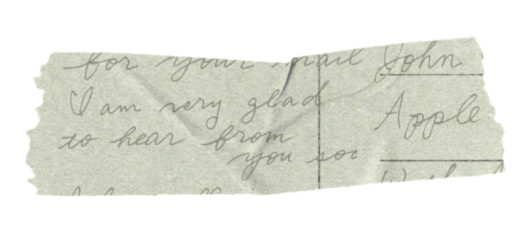 for your mail
I am very glad
to hear from
you soo
John
Apple